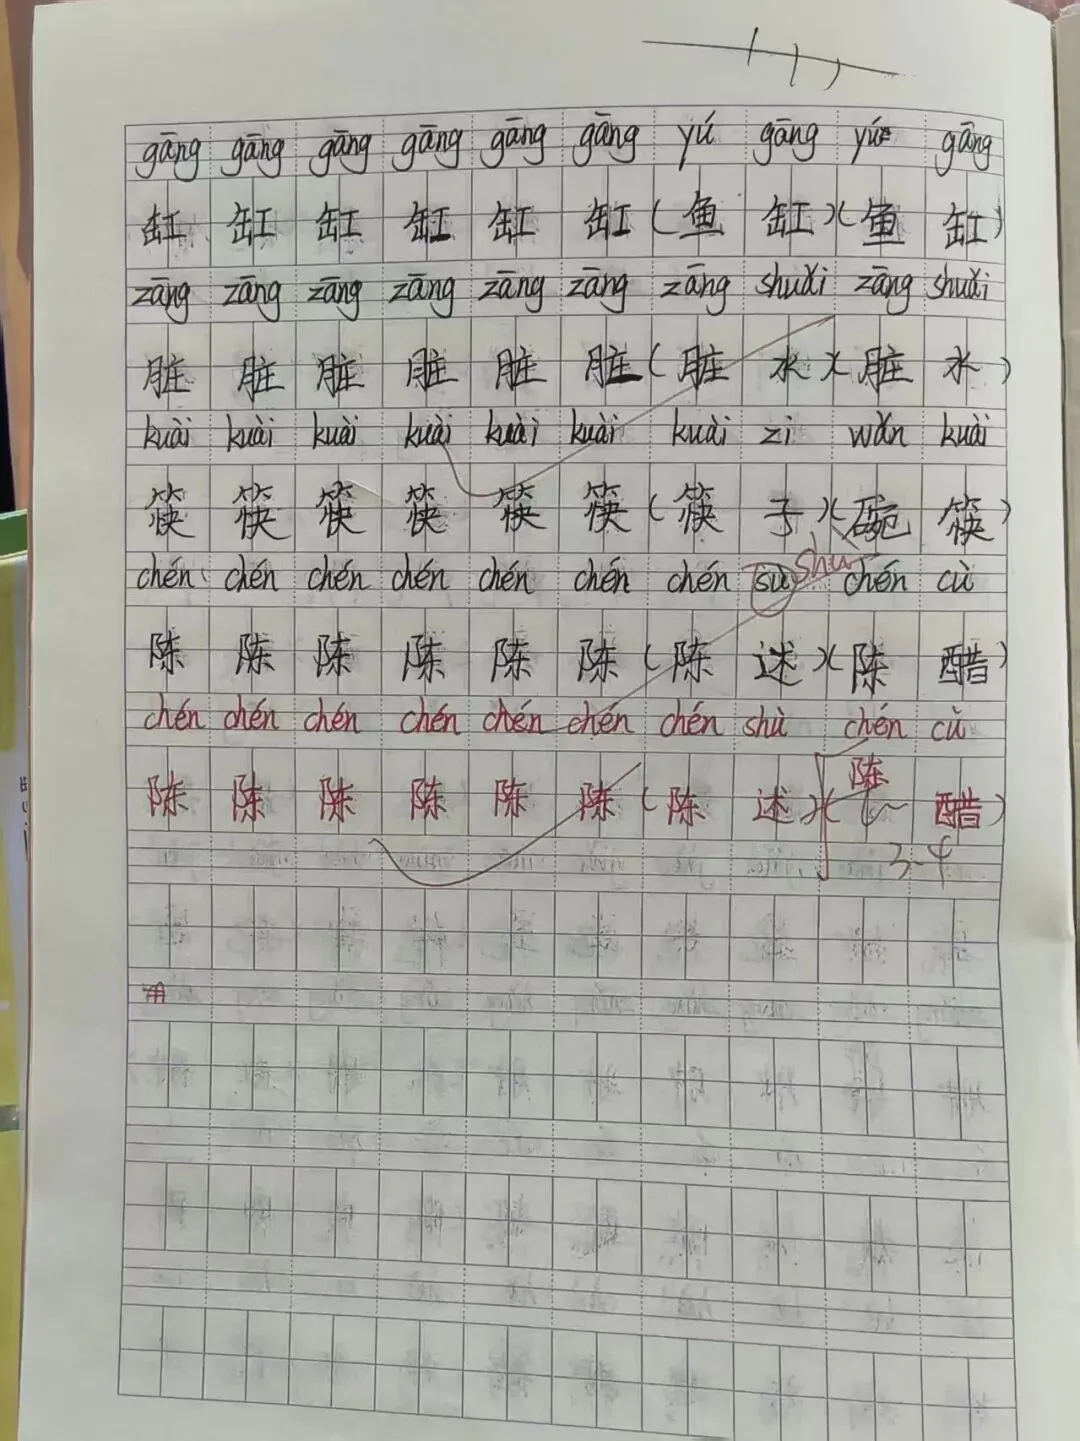 gāng gāng gāng gāng gāng gāng yú gāng yú gāng
缸 缸 缸 缸 缸 缸 ( 鱼 缸 ) ( 鱼 缸 )
zāng zāng zāng zāng zāng zāng zāng shuǎi zāng shuǎi
脏 脏 脏 脏 脏 脏 ( 脏 水 ) ( 脏 水 )
kuài kuài kuài kuài kuài kuài kuài zi wǎn kuài
筷 筷 筷 筷 筷 筷 ( 筷 子 ) ( 碗 筷 )
shù
chén chén chén chén chén chén chén sù chén cù
陈 陈 陈 陈 陈 陈 ( 陈 述 ) ( 陈 醋 )
chén chén chén chén chén chén chén shù chén cù
陈 陈 陈 陈 陈 陈 ( 陈 述 ) ( 陈 醋 )
3-4